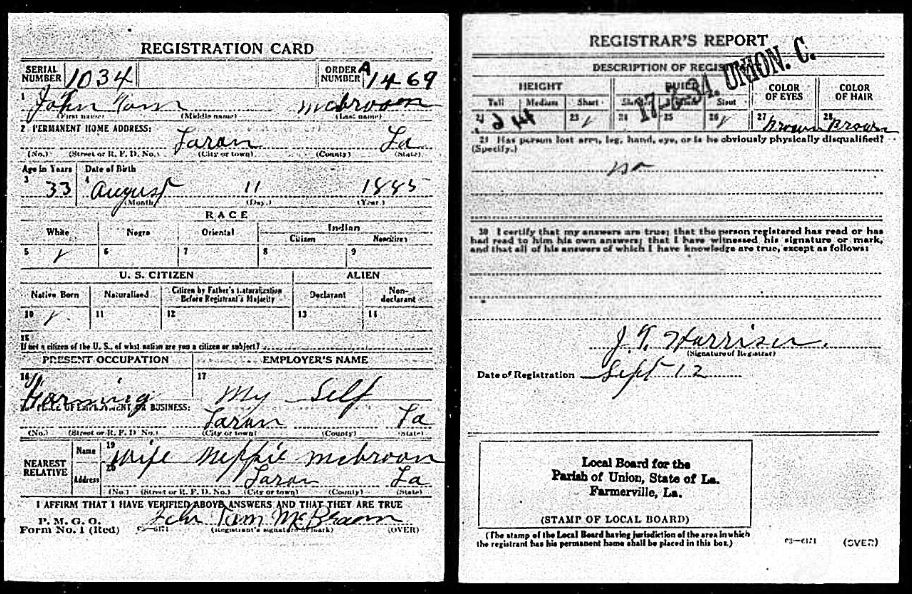 REGISTRATION CARD
SERIAL NUMBER 1034
ORDER NUMBER A1469
1 John Tom McBroom
(First name) (Middle name) (Last name)
2 PERMANENT HOME ADDRESS:
Laran La
(No.) (Street or R. F. D. No.) (City or town) (County) (State)
Age in Years Date of Birth
3 33 4 August 11 1885
(Month) (Day.) (Year.)
RACE
White Negro Oriental Indian
Citizen Noncitizen
5 ✓ 6 7 8 9
U. S. CITIZEN ALIEN
Native Born Naturalized Citizen by Father's Naturalization Before Registrant's Majority Declarant Non-declarant
10 ✓ 11 12 13 14
15 If not a citizen of the U. S., of what nation are you a citizen or subject?
PRESENT OCCUPATION EMPLOYER'S NAME
16 Farming 17 My Self
PLACE OF EMPLOYMENT OR BUSINESS:
Laran La
(No.) (Street or R. F. D. No.) (City or town) (County) (State)
NEAREST RELATIVE
Name 19 Wife Neppie McBroom
Address 20 Laran La
(No.) (Street or R. F. D. No.) (City or town) (County) (State)
I AFFIRM THAT I HAVE VERIFIED ABOVE ANSWERS AND THAT THEY ARE TRUE
P. M. G. O.
Form No. 1 (Red) John Tom McBroom
(Registrant's signature or mark) (OVER)
REGISTRAR'S REPORT
17-2-34. UNION. C.
DESCRIPTION OF REGISTRANT
HEIGHT BUILD COLOR OF EYES COLOR OF HAIR
Tall Medium Short Slender Medium Stout
21 23 ✓ 24 25 26 ✓ 27 Brown 28 Brown
29 Has person lost arm, leg, hand, eye, or is he obviously physically disqualified?
(Specify.)
no
30 I certify that my answers are true; that the person registered has read or has
had read to him his own answers; that I have witnessed his signature or mark,
and that all of his answers of which I have knowledge are true, except as follows:
J. T. Harrison.
(Signature of Registrar)
Date of Registration Sept 12
Local Board for the
Parish of Union, State of La.
Farmerville, La.
(STAMP OF LOCAL BOARD)
(The stamp of the Local Board having jurisdiction of the area in which
the registrant has his permanent home shall be placed in this box.)
03—6171 (OVER)